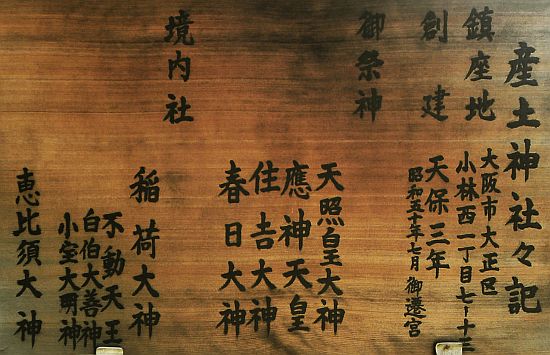 産土神社々記
鎮座地
大阪市大正区
小林西一丁目七ー十三
創建
天保三年
昭和五十年七月御遷宮
御祭神
天照皇大神
應神天皇
住吉大神
春日大神
境内社
稲荷大神
不動天王
白伯大善神
小室大明神
恵比須大神